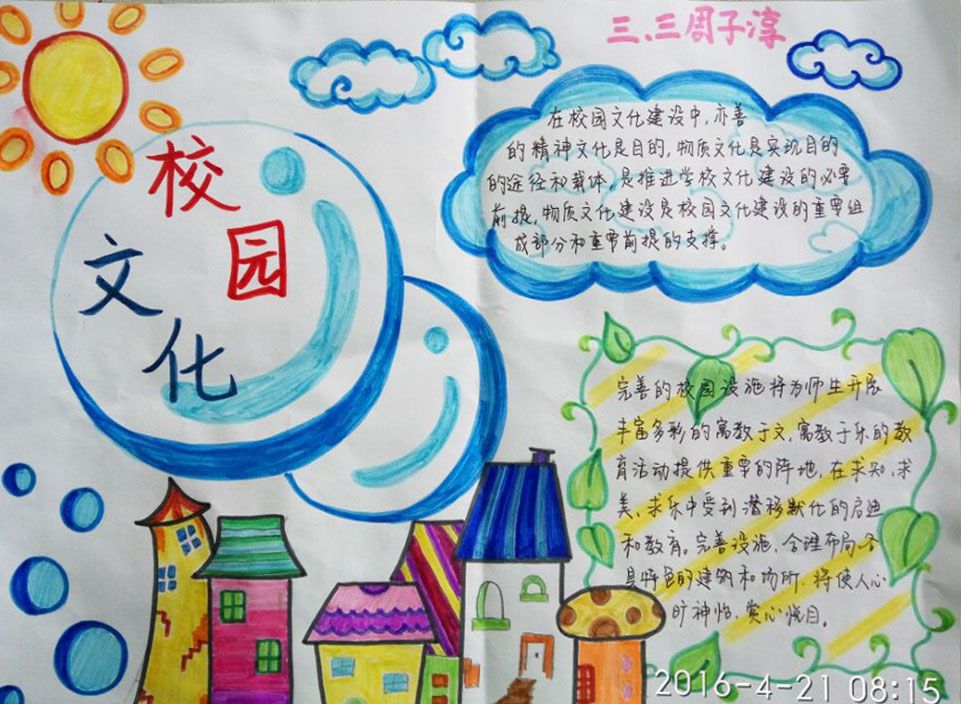 三、三周子淳
校园
文化
在校园文化建设中,亦善
的精神文化是目的,物质文化是实现目的
的途径和载体,是推进学校文化建设的必要
前提,物质文化建设是校园文化建设的重要组
成部分和重要前提的支撑。
完善的校园设施将为师生开展
丰富多彩的寓教于文,寓教于乐的教
育活动提供重要的阵地,在求知、求
美、求乐中受到潜移默化的启迪
和教育。完善设施,合理布局,各
具特色的建筑和场所,将使人心
旷神怡,赏心悦目。
2016-4-21 08:15